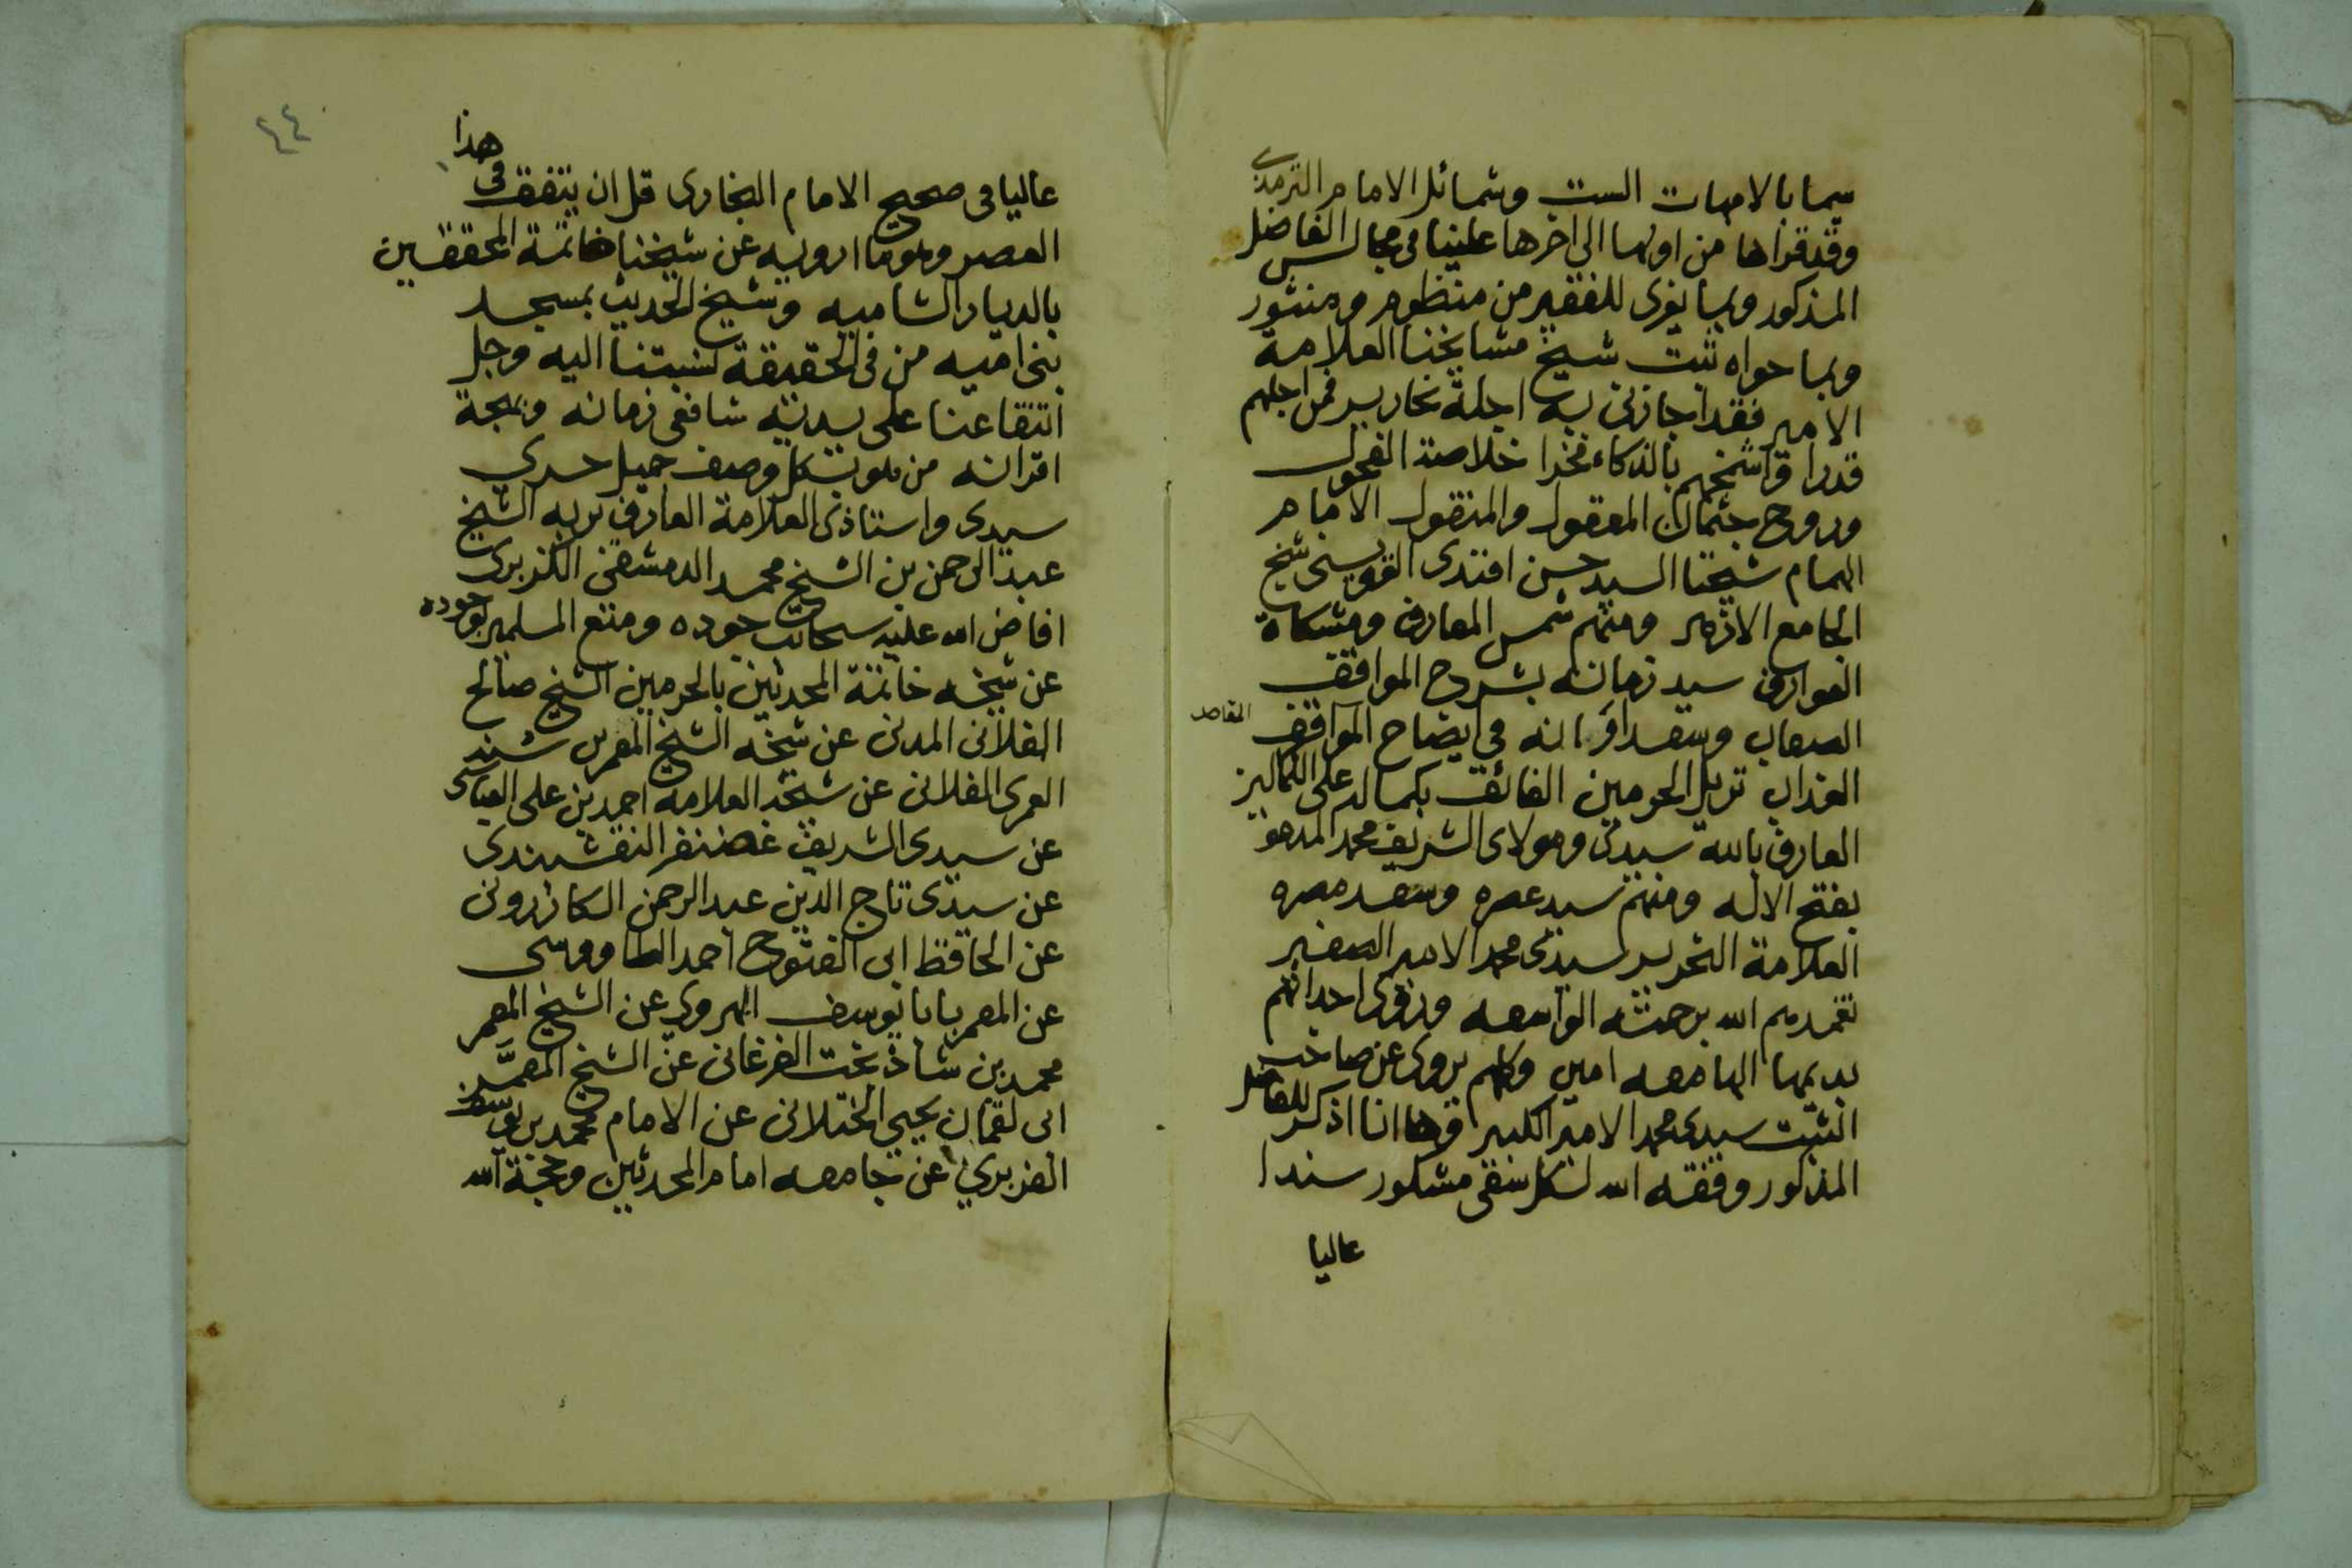 سيما بالامهات الست وشمائل الامام الترمذي
وقد قراها من اولها الى اخرها علينا فى مجالس الفاضل
المذكور وبما يعزى للفقير من منظوم ومنثور
وبما حواه ثبت شيخ مشايخنا العلامة
الامير فقد اجازنى به اجلة نحارير فمن اجلهم
قدرا واشمخهم بالذكاء فخرا خلاصة الفحول
وروح جثمان المعقول والمنقول الامام
الهمام شيخنا السيد حسن افندى القويسنى شيخ
الجامع الازهر ومنهم شمس المعارف ومشكاة
العوارف سيد زمانه بشرح المواقف
الصعاب وسعد اقرانه فى ايضاح المواقف
المقاصد
العذاب نزيل الحرمين الفائق بكماله على الكمالين
العارف بالله سيدى ومولاى الشريف محمد المدعو
بفتح الاله ومنهم سيد عصره وسعد مصره
العلامة النحرير سيدى محمد الامير الصغير
تغمدهم الله برحمته الواسعه وروى اجداثهم
بديمها الهامعه امين وكلهم يروى عن صاحب
الثبت سيدى محمد الامير الكبير وها انا اذكر للفاضل
المذكور وفقه الله لكل سعى مشكور سندا
عاليا
٤٤
هذا
عاليا فى صحيح الامام البخارى قل ان يتفق فى
العصر وهو ما ارويه عن شيخنا خاتمة المحققين
بالديار الشاميه وشيخ الحديث بمسجد
بنى اميه من فى الحقيقة نسبتنا اليه وجل
انتفاعنا على يديه شافعى زمانه وبهجة
اقرانه من هو بكل وصف جميل حري
سيدى واستاذى العلامة العارف بربه الشيخ
عبد الرحمن بن الشيخ محمد الدمشقى الكزبرى
افاض الله عليه سحائب جوده ومتع المسلمين بوجوده
عن شيخه خاتمة المحدثين بالحرمين الشيخ صالح
الفلانى المدنى عن شيخه الشيخ المعمر بن سنه
العمرى الفلانى عن شيخه العلامه احمد بن على العباسى
عن سيدى الشريف غضنفر النقشبندى
عن سيدى تاج الدين عبد الرحمن الكازرونى
عن الحافظ ابى الفتوح احمد الطاووسى
عن المعمر بابا يوسف الهروى عن الشيخ المعمر
محمد بن شاذ بخت الفرغانى عن الشيخ المعمَّر
ابى لقمان يحيى الختلانى عن الامام محمد بن يوسف
الفربري عن جامعه امام المحدثين وحجة الله